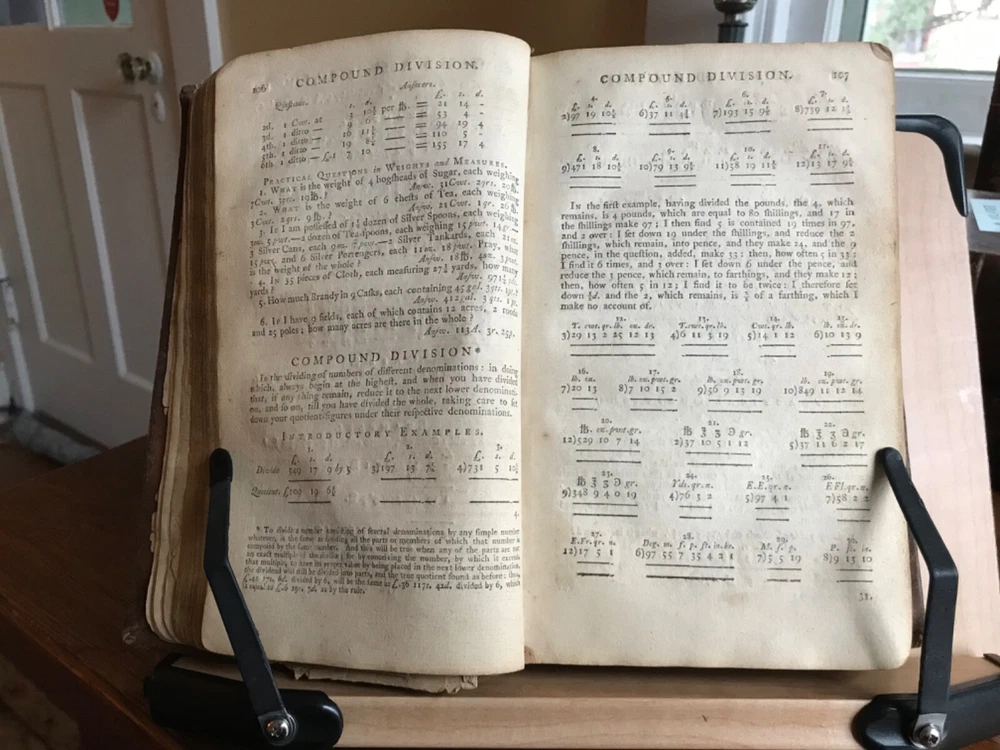 106 COMPOUND DIVISION.
Questions. Answers.
s. d. £. s. d.
2d. 1 Cwt. at 3 10½ per lb. = 21 14 -
3d. 1 ditto — 9 = 53 4 -
4th. 1 ditto — 10 11½ = 94 19 4
5th. 1 ditto — 19 = 110 5 -
6th. 1 ditto — £.1 7 10 = 155 17 4
PRACTICAL QUESTIONS in WEIGHTS and MEASURES.
1. WHAT is the weight of 4 hogsheads of Sugar, each weighing
7Cwt. 3qrs. 19lb.? Answ. 31Cwt. 2qrs. 20lb.
2. WHAT is the weight of 6 chests of Tea, each weighing
3Cwt. 2qrs. 9lb.? Answ. 21Cwt. 1qr. 26lb.
3. If I am possessed of 1½ dozen of Silver Spoons, each weighing
3oz. 5pwt.—2 dozen of Tea-spoons, each weighing 15pwt. 14gr.—
3 Silver Cans, each 9oz. 7pwt.—2 Silver Tankards, each 21oz.
15pwt. and 6 Silver Porrengers, each 11oz. 18pwt. Pray, what
is the weight of the whole? Answ. 18lb. 4oz. 3pwt.
4. In 35 pieces of Cloth, each measuring 27¾ yards, how many
yards? Answ. 971¼yds.
5. How much Brandy in 9 Casks, each containing 45gal. 3qts. 1pt.?
Answ. 412gal. 3qts. 1pt.
6. If I have 9 fields, each of which contains 12 acres, 2 roods
and 25 poles; how many acres are there in the whole?
Answ. 113A. 3r. 25p.
COMPOUND DIVISION*
Is the dividing of numbers of different denominations: in doing
which, always begin at the highest, and when you have divided
that, if any thing remain, reduce it to the next lower denomination,
and so on, till you have divided the whole, taking care to set
down your quotient figures under their respective denominations.
INTRODUCTORY EXAMPLES.
1. 2. 3.
£. s. d. £. s. d. £. s. d.
Divide 549 17 9 by 5 3)197 13 7¼ 4)731 5 10½
Quotient £109 19 6½
4.
* To divide a number consisting of several denominations by any simple number
whatever, is the same as dividing all the parts or members of which that number is
composed by the same number. And this will be true when any of the parts are not
an exact multiple of the divisor; for by conceiving the number, by which it exceeds
that multiple, to have its proper value by being placed in the next lower denomination,
the dividend will still be divided into parts, and the true quotient found as before: thus,
divided by 6, will be the same as £.36 117s. 42d. divided by 6, which
is equal to £.6 19s. 7d. as by the rule.
COMPOUND DIVISION. 107
4. 5. 6. 7.
£. s. d. £. s. d. £. s. d. £. s. d.
2)97 19 10½ 6)37 11 4¾ 7)193 15 9½ 8)739 12 1¾
8. 9. 10. 11.
£. s. d. £. s. d. £. s. d. £. s. d.
9)471 18 10½ 10)79 13 9½ 11)58 19 11¾ 12)13 17 9½
In the first example, having divided the pounds, the 4, which
remains, is 4 pounds, which are equal to 80 shillings, and 17 in
the shillings make 97; I then find 5 is contained 19 times in 97,
and 2 over: I set down 19 under the shillings, and reduce the 2
shillings, which remain, into pence, and they make 24, and the 9
pence, in the question, added, make 33: then, how often 5 in 33:
I find it 6 times, and 3 over: I set down 6 under the pence, and
reduce the 3 pence, which remain, to farthings, and they make 12;
then, how often 5 in 12; I find it to be twice: I therefore set
down ½d. and the 2, which remains, is ⅖ of a farthing, which I
make no account of.
12. 13. 14. 15.
T. cwt. qr. lb. oz. dr. T. cwt. qr. lb. Cwt. qr. lb. lb. oz. dr.
3)29 13 2 25 12 13 4)6 11 3 19 5)14 1 12 6)10 13 9
16. 17. 18. 19.
lb. oz. lb. oz. pwt. gr. lb. oz. pwt. gr. lb. oz. pwt. gr.
7)20 13 8)7 10 15 2 9)56 9 13 19 10)849 11 12 14
20. 21. 22.
lb. oz. pwt. gr. ℔ ℥ ʒ ℈ gr. ℔ ℥ ʒ ℈ gr.
12)529 10 7 14 2)37 10 5 1 12 5)37 11 6 2 17
23. 24. 25. 26.
℔ ℥ ʒ ℈ gr. Yds. qr. n. E.E. qr. n. E Fl. qr. n.
9)348 9 4 0 19 4)76 3 2 5)97 4 1 7)58 2 2
27. 28. 29. 30.
E.Fr. qr. n. Deg. m. f. p. ft. in. bc. M. f. p. P. ft. in.
12)17 5 1 6)97 55 7 35 4 2 1 7)5 5 19 8)9 13 10
31.